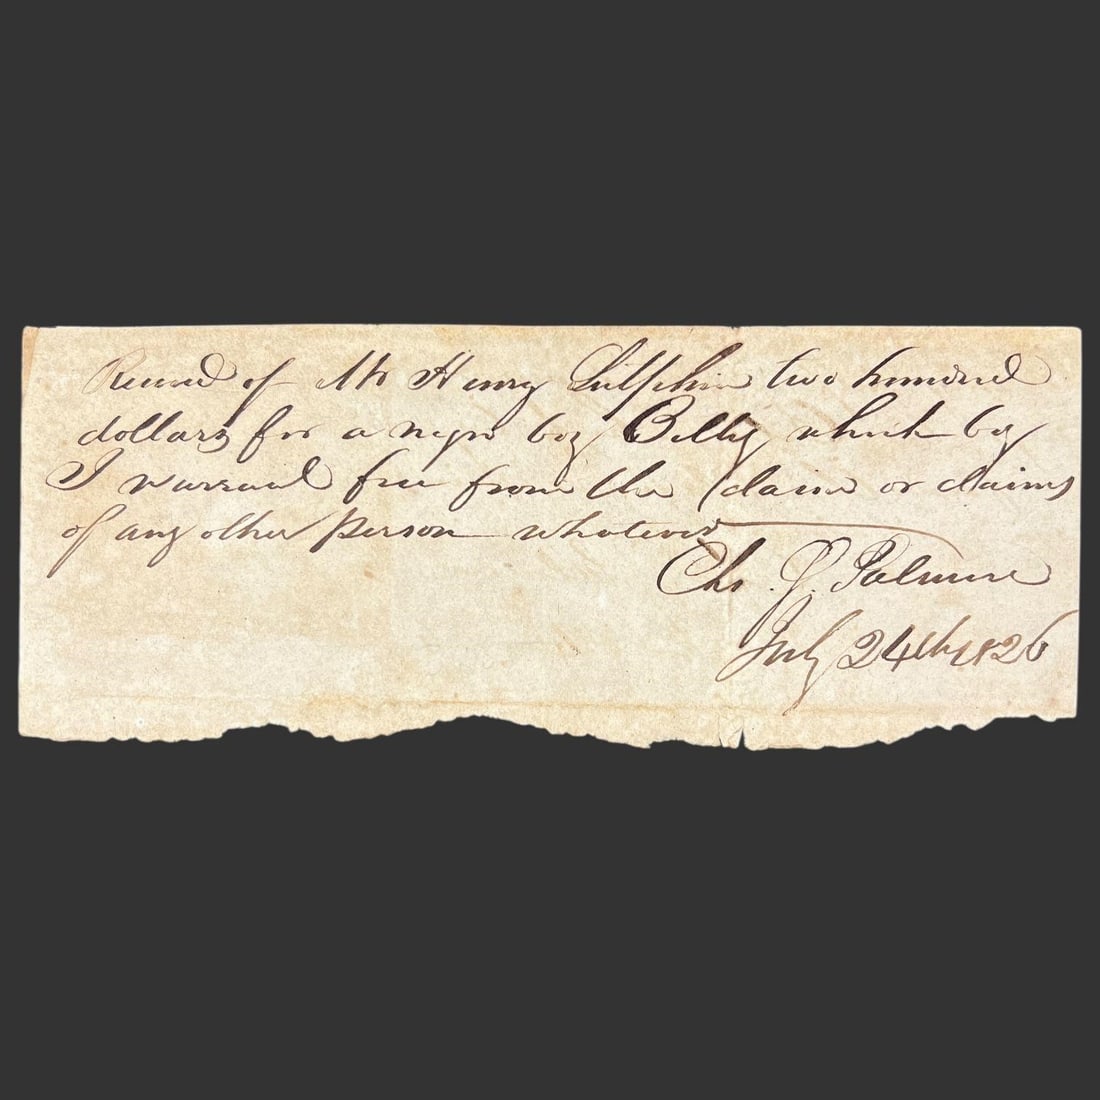 Received of Mr Henry two hundred
dollars for a negro boy Billy which boy
I warrant free from the claim or claims
of any other person whatever
Chs. J. Palmore
July 24th 1826